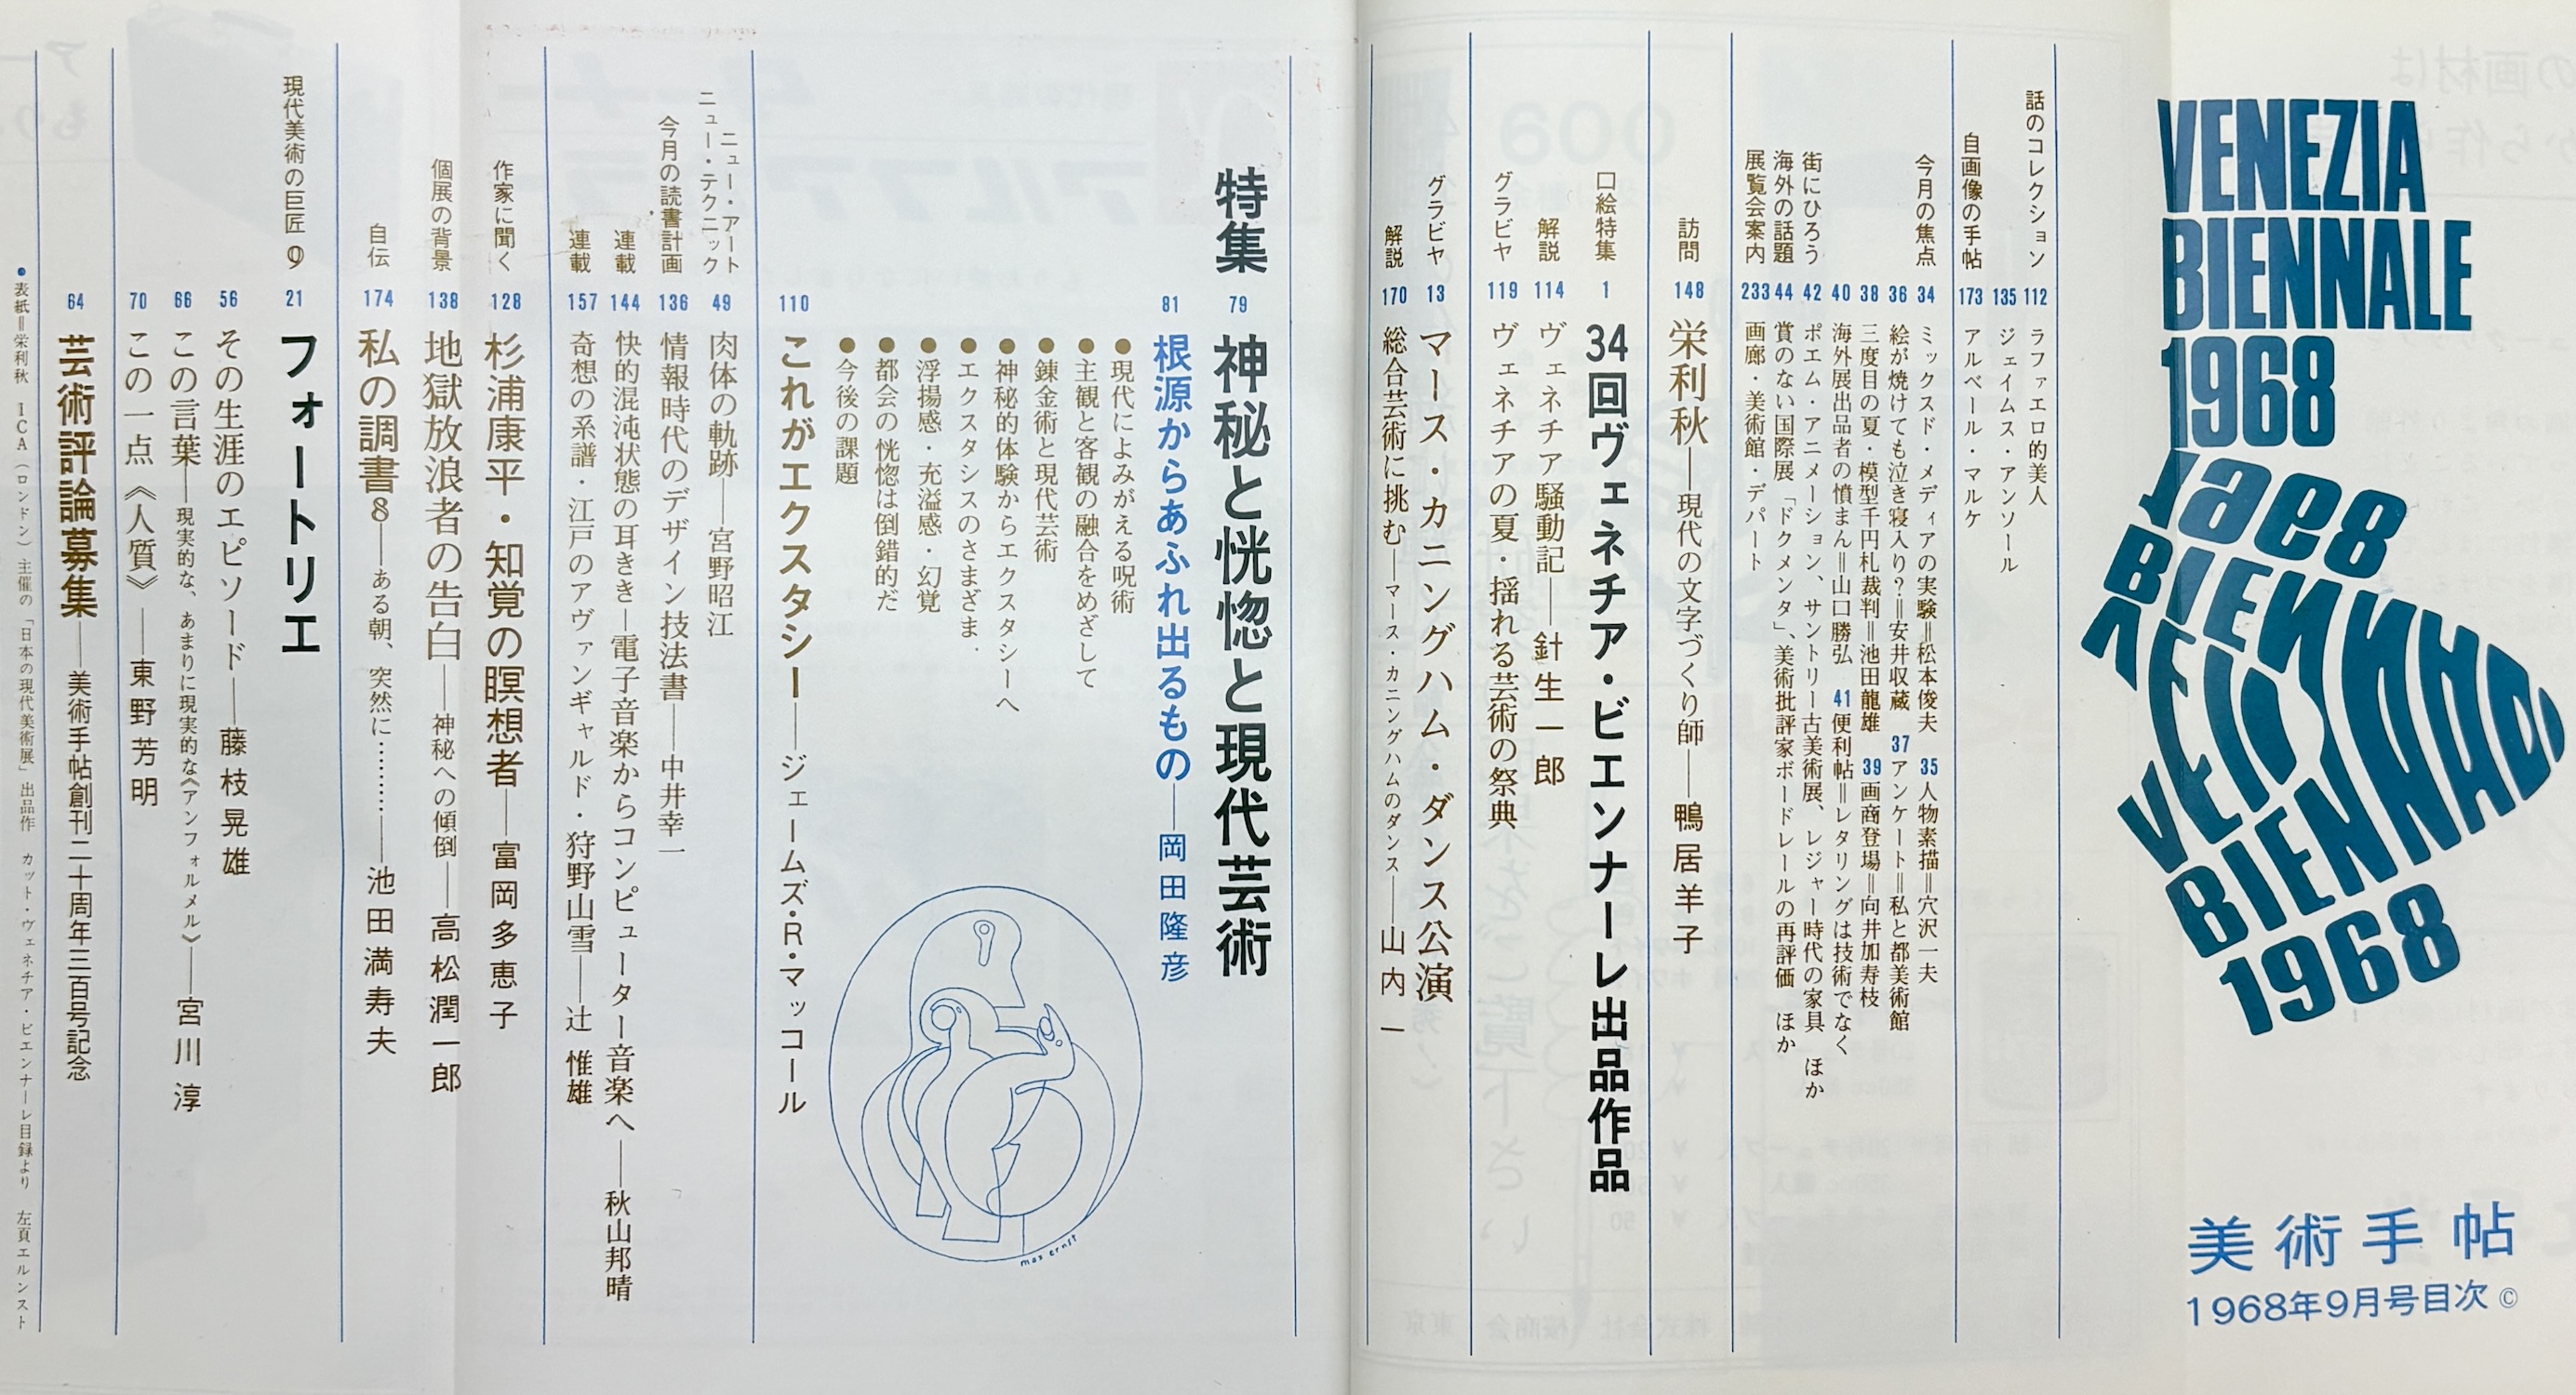 VENEZIA
BIENNALE
1968
BIENNALE
BIENNALE
1968
美術手帖
1968年9月号目次 ©
話のコレクション 112 ラファエロ的美人
135 ジェイムス・アンソール
自画像の手帖 173 アルベール・マルケ
今月の焦点 34 ミックスド・メディアの実験＝松本俊夫 35 人物素描＝穴沢一夫
36 絵が焼けても泣き寝入り？＝安井収蔵 37 アンケート＝私と都美術館
38 三度目の夏・模型千円札裁判＝池田龍雄 39 画商登場＝向井加寿枝
40 海外展出品者の憤まん＝山口勝弘 41 便利帖＝レタリングは技術でなく
街にひろう 42 ポエム・アニメーション、サントリー古美術展、レジャー時代の家具 ほか
海外の話題 44 賞のない国際展「ドクメンタ」、美術批評家ボードレールの再評価 ほか
展覧会案内 233 画廊・美術館・デパート
訪問 148 栄利秋―現代の文字づくり師―鴨居羊子
口絵特集 1 34回ヴェネチア・ビエンナーレ出品作品
解説 114 ヴェネチア騒動記―針生一郎
グラビヤ 119 ヴェネチアの夏・揺れる芸術の祭典
グラビヤ 13 マース・カニングハム・ダンス公演
解説 170 総合芸術に挑む―マース・カニングハムのダンス―山内一
特集 79 神秘と恍惚と現代芸術
81 根源からあふれ出るもの―岡田隆彦
●現代によみがえる呪術
●主観と客観の融合をめざして
●錬金術と現代芸術
●神秘的体験からエクスタシーへ
●エクスタシスのさまざま
●浮揚感・充溢感・幻覚
●都会の恍惚は倒錯的だ
●今後の課題
110 これがエクスタシー―ジェームズ・R・マッコール
max ernst
ニュー・アート
ニュー・テクニック 49 肉体の軌跡―宮野昭江
今月の読書計画 136 情報時代のデザイン技法書―中井幸一
連載 144 快的混沌状態の耳きき―電子音楽からコンピューター音楽へ―秋山邦晴
連載 157 奇想の系譜・江戸のアヴァンギャルド・狩野山雪―辻 惟雄
作家に聞く 128 杉浦康平・知覚の瞑想者―富岡多恵子
個展の背景 138 地獄放浪者の告白―神秘への傾倒―高松潤一郎
自伝 174 私の調書8―ある朝、突然に………―池田満寿夫
現代美術の巨匠 9 21 フォートリエ
56 その生涯のエピソード―藤枝晃雄
66 この言葉―現実的な、あまりに現実的な《アンフォルメル》―宮川 淳
70 この一点《人質》―東野芳明
64 芸術評論募集―美術手帖創刊二十周年三百号記念
●表紙＝栄利秋 ICA（ロンドン）主催の「日本の現代美術展」出品作 カット・ヴェネチア・ビエンナーレ目録より 左頁エルンスト